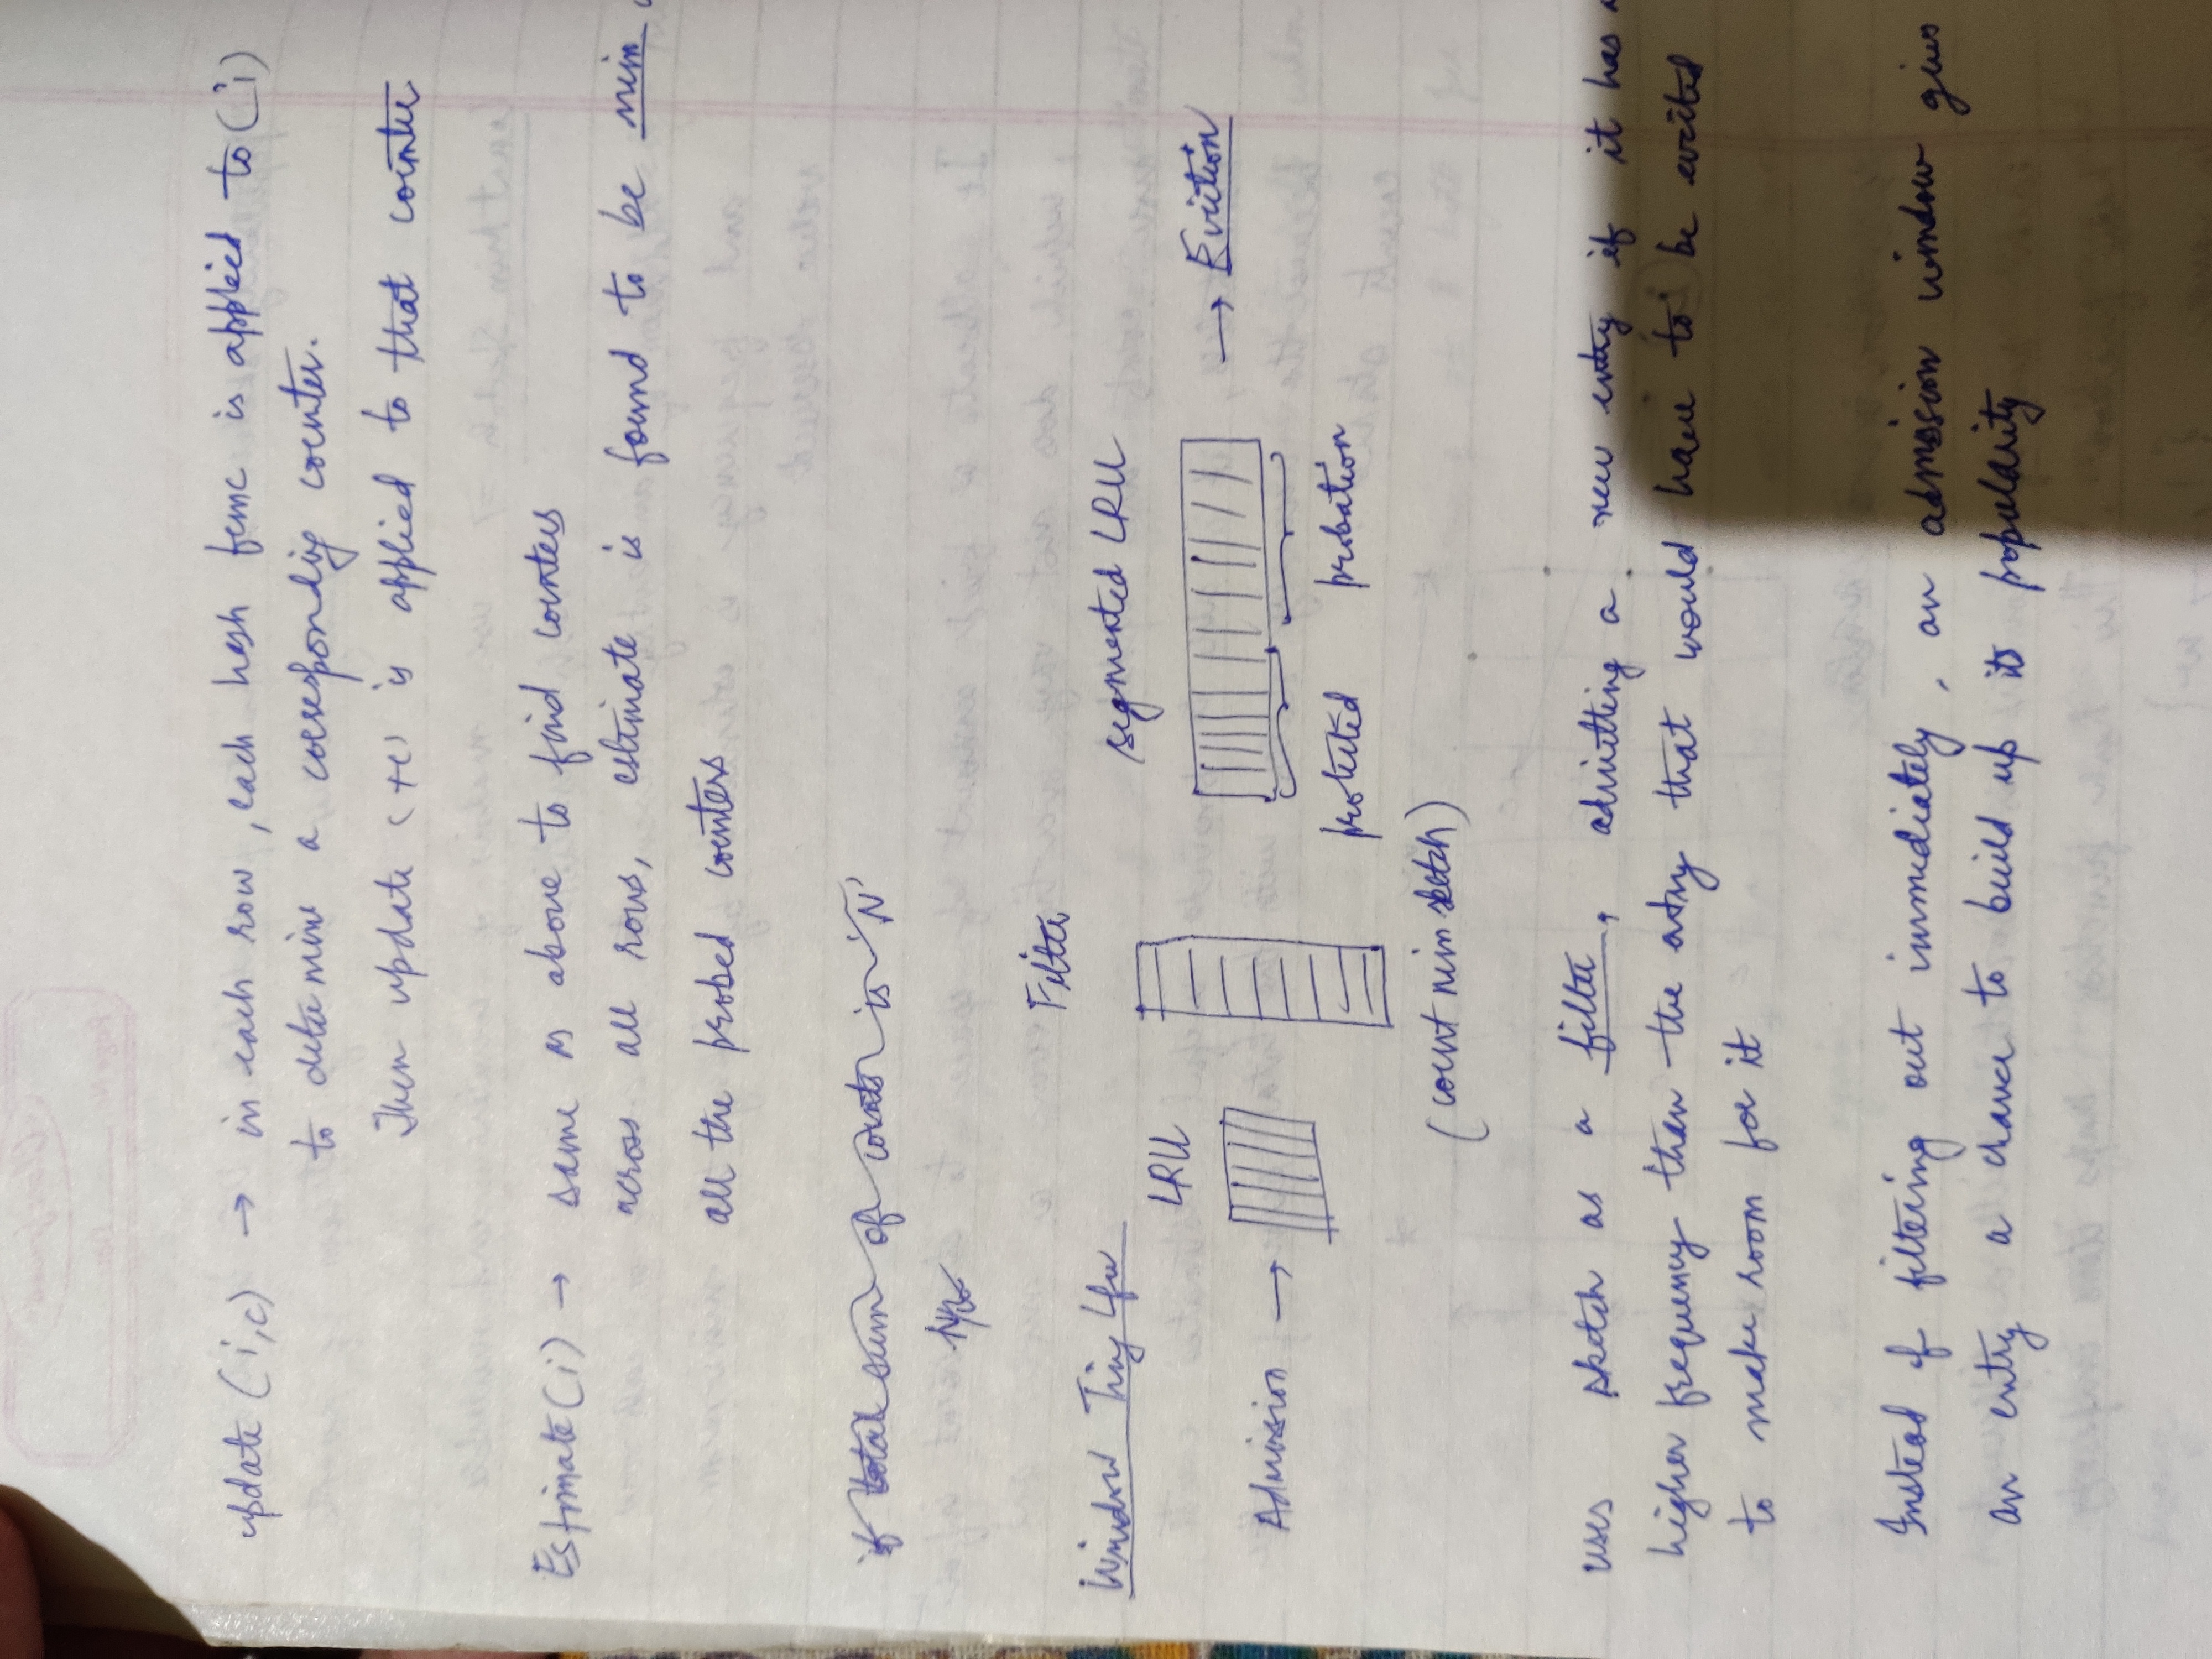 update (i,c) → in each row, each hash func is applied to (i)
to determine a corresponding counter.
Then update (+c) is applied to that counter
Estimate (i) → same as above to find counters
across all rows, estimate is found to be min
all the probed counters
if total sum of counts is 'N'
Window Tiny Lfu
Filter
LRU
segmented LRU
Admission →
→ Eviction
protected
probation
(count min sketch)
uses sketch as a filter, admitting a new entry if it has
higher frequency than the entry that would have to be evicted
to make room for it
Instead of filtering out immediately, an admission window gives
an entry a chance to build up its popularity